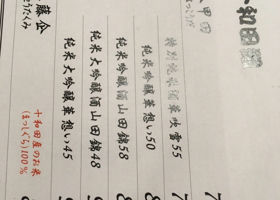 和田
甲田
特別純米酒華吹雪55
純米吟醸華想い50
純米吟醸酒山田錦58
純米大吟醸酒山田錦48
純米大吟醸華想い45
十和田産のお米
(まっしぐら)100%